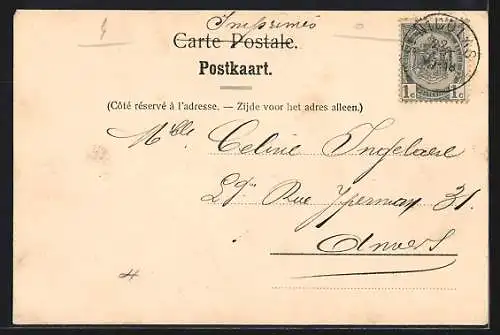 Imprimés
Carte Postale.
Postkaart.
1c 1c
(Côté réservé à l'adresse. — Zijde voor het adres alleen.)
Mlle Celine Ingelaere
Rue Yperman 31.
Anvers